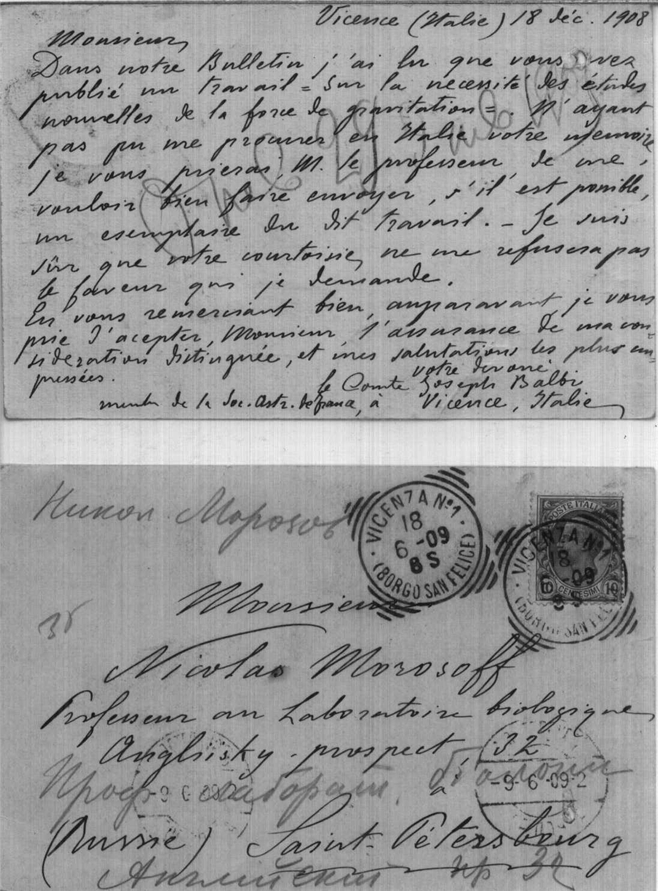 Vicence (Italie) 18 déc. 1908
Monsieur,
Dans notre Bulletin j'ai lu que vous avez
publié un travail = Sur la necessité des études
nouvelles de la force de gravitation = N'ayant
pas pu me procurer en Italie votre memoire,
je vous prierai, M. le professeur de me
vouloir bien faire envoyer, s'il est possible,
un esemplaire du dit travail. - Je suis
sûr que votre courtoisie ne me refusera pas
le faveur qui je demande.
En vous remerciant bien, auparavant je vous
prie d'acepter, Monsieur, l'assurance de ma con-
sideration distinguée, et mes salutations les plus em-
pressées.
votre devoué
le Comte Joseph Balbi
membre de la Soc. Astr. de france, à Vicence, Italie
Никол Морозов
VICENZA Nº1
18
6 -09
8 S
(BORGO SAN FELICE)
POSTE ITALIANE
10 CENTESIMI 10
VICENZA Nº1
18
6 -09
8 S
(BORGO SAN FELICE)
Monsieur
Nicolas Morosoff
Professeur au Laboratoire biologique
Anglisky - prospect 32
Проф. лаборат.
à
-9-6-09-2
(Russie) Saint-Pétersbourg
Английский пр 32